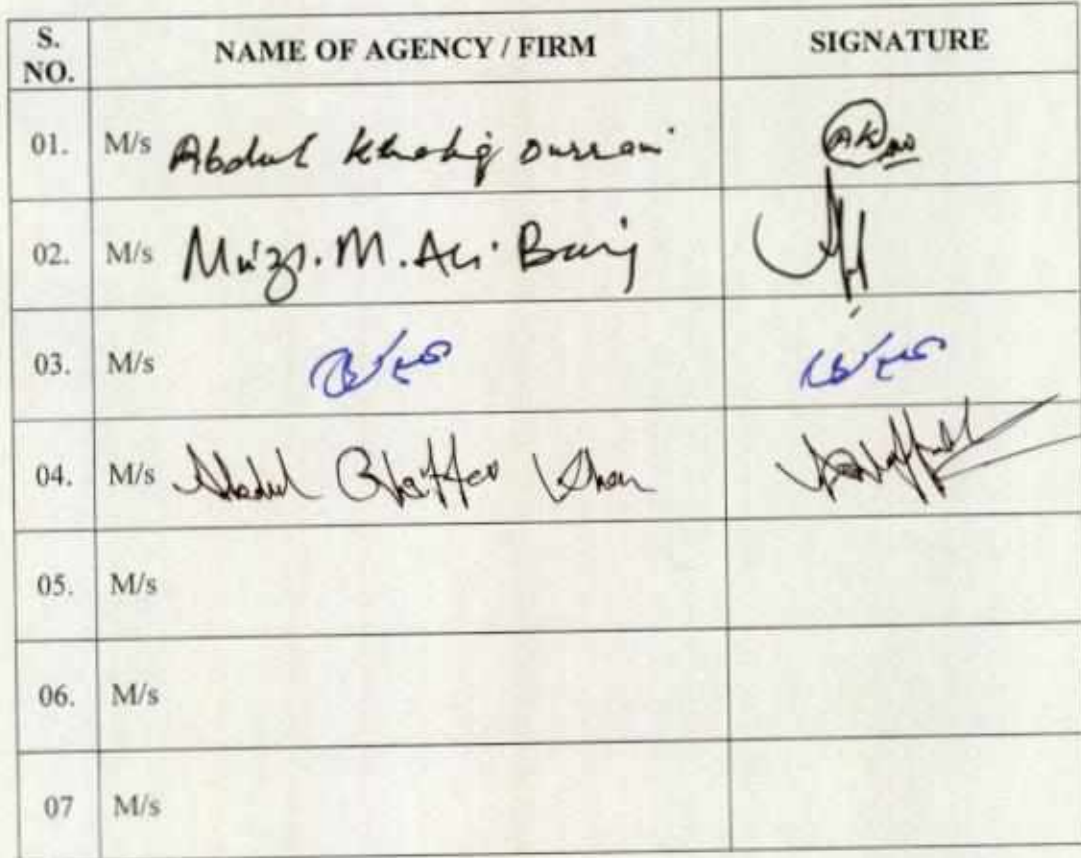 S. NO. NAME OF AGENCY / FIRM SIGNATURE
01. M/s Abdul Khaliq Durrani
02. M/s Mirza. M. Ali Baig
03. M/s
04. M/s Abdul Ghaffar Khan
05. M/s
06. M/s
07 M/s